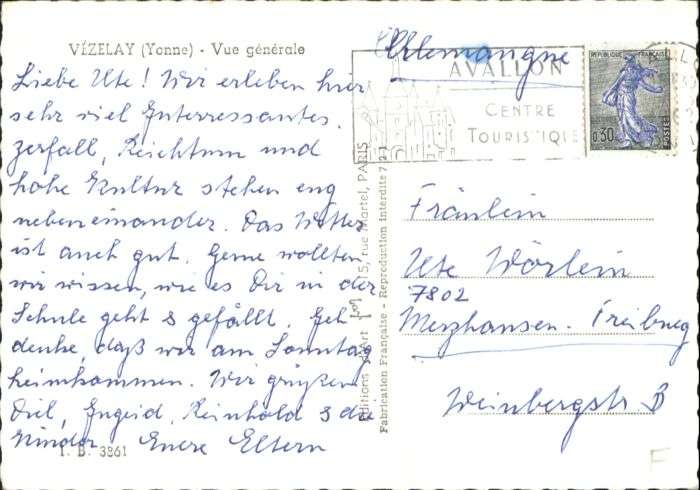 VÉZELAY (Yonne) - Vue générale
Liebe Ute! Wir erleben hier
sehr viel Interressantes.
Zerfall, Reichtum und
hohe Kultur stehen eng
nebeneinander. Das Wetter
ist auch gut. Gerne wollten
wir wissen, wie es Dir in der
Schule geht & gefällt. Ich
denke, daß wir am Sonntag
heimkommen. Wir grüßen
Dich, Ingrid, Reinhold & die
Kinder. Eure Eltern
I. B. 3861
Editions d'Art 15, rue Martel, PARIS
Fabrication Française - Reproduction Interdite
Allemangne
AVALLON
CENTRE
TOURISTIQUE
REPUBLIQUE FRANÇAISE
0,30
POSTES
Fräulein
Ute Wörlein
7802
Merzhausen - Freiburg
Weinbergstr. 8
F